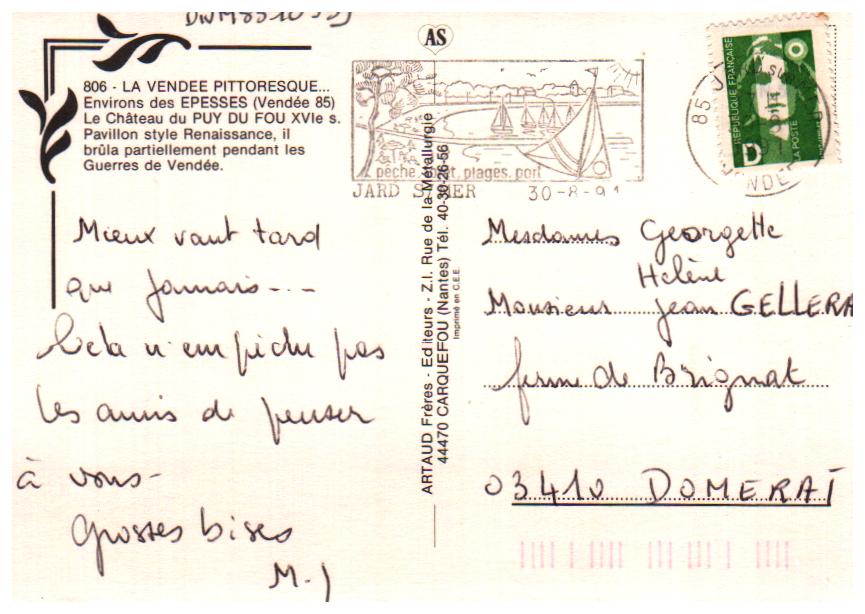 AS
806 - LA VENDEE PITTORESQUE...
Environs des EPESSES (Vendée 85)
Le Château du PUY DU FOU XVIe s.
Pavillon style Renaissance, il
brûla partiellement pendant les
Guerres de Vendée.
Mieux vaut tard
que jamais...
Cela n'empêche pas
les amis de penser
à vous-
Grosses bises
M.J
ARTAUD Frères - Editeurs - Z.I. Rue de la Métallurgie
44470 CARQUEFOU (Nantes) Tél. 40-30-26-56
Imprimé en C.E.E.
pêche, plages, port
JARD S/MER 30-8-91
REPUBLIQUE FRANÇAISE
D
LA POSTE
85
VENDEE
Mesdames Georgette
Hélène
Monsieur Jean GELLERA
ferme de Brignat
03410 DOMERAT